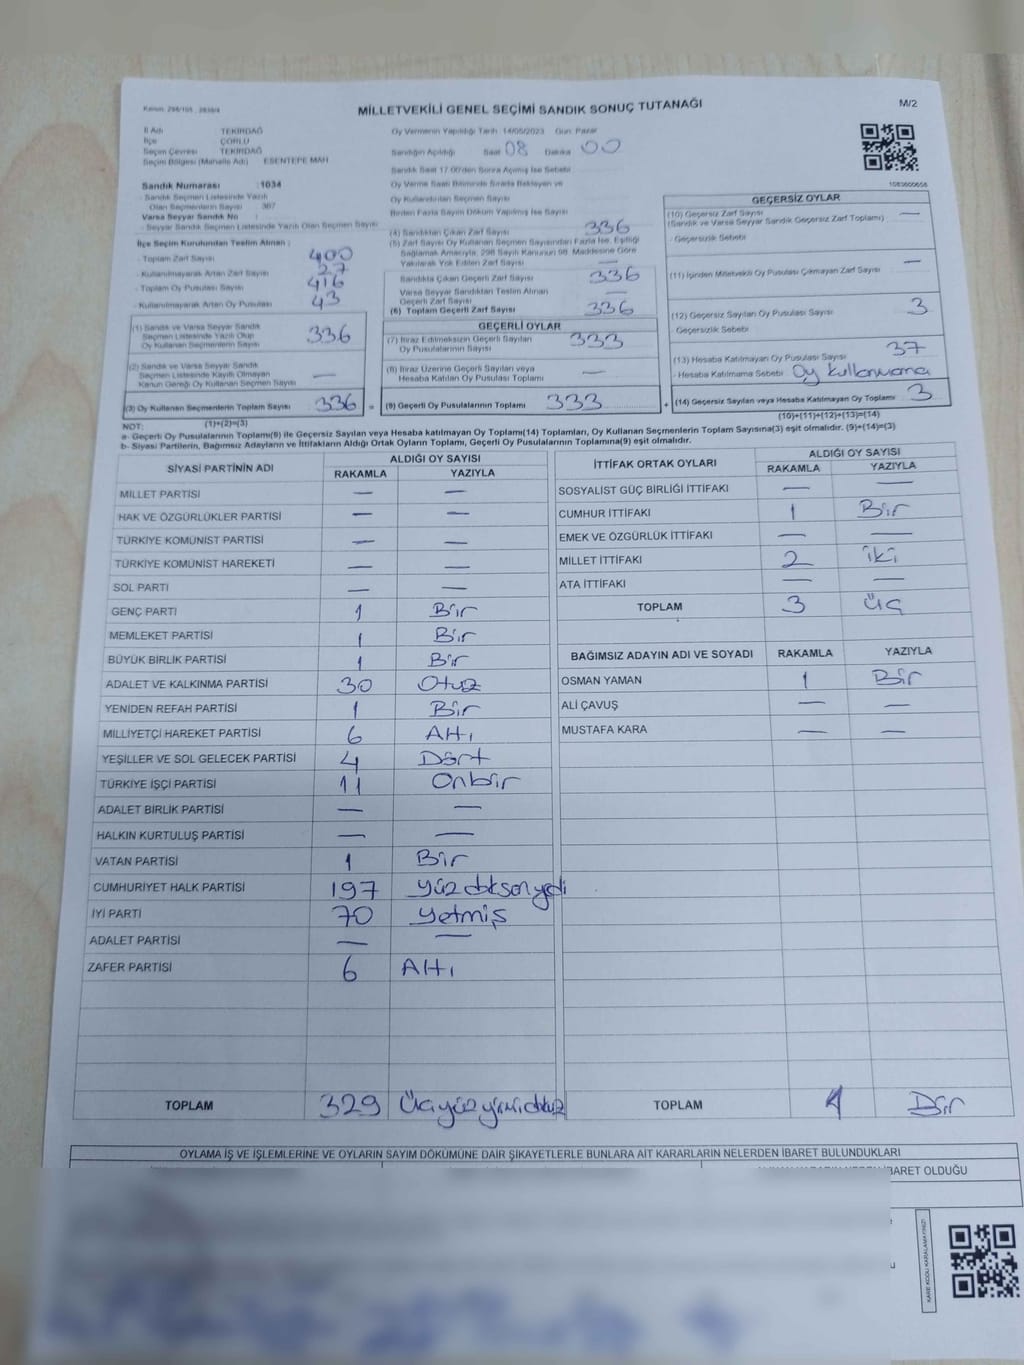 Kanun: 298/105 , 2839/4
MİLLETVEKİLİ GENEL SEÇİMİ SANDIK SONUÇ TUTANAĞI
M/2
İl Adı TEKİRDAĞ
İlçe ÇORLU
Seçim Çevresi TEKİRDAĞ
Seçim Bölgesi (Mahalle Adı) ESENTEPE MAH
Sandık Numarası : 1034
- Sandık Seçmen Listesinde Yazılı
Olan Seçmenlerin Sayısı : 387
Varsa Seyyar Sandık No :
- Seyyar Sandık Seçmen Listesinde Yazılı Olan Seçmen Sayısı
İlçe Seçim Kurulundan Teslim Alınan ;
- Toplam Zarf Sayısı 400
- Kullanılmayarak Artan Zarf Sayısı 27
- Toplam Oy Pusulası Sayısı 416
- Kullanılmayarak Artan Oy Pusulası 43
(1) Sandık ve Varsa Seyyar Sandık
Seçmen Listesinde Yazılı Olup
Oy Kullanan Seçmenlerin Sayısı 336
(2) Sandık ve Varsa Seyyar Sandık
Seçmen Listesinde Kayıtlı Olmayan
Kanun Gereği Oy Kullanan Seçmen Sayısı —
(3) Oy Kullanan Seçmenlerin Toplam Sayısı 336 =
(1)+(2)=(3)
Oy Vermenin Yapıldığı Tarih 14/05/2023 Gün: Pazar
Sandığın Açıldığı Saat 08 Dakika 00
Sandık Saat 17.00'den Sonra Açılmış İse Sebebi
Oy Verme Saati Bitiminde Sırada Bekleyen ve
Oy Kullandırılan Seçmen Sayısı
Birden Fazla Sayım Döküm Yapılmış İse Sayısı
(4) Sandıktan Çıkan Zarf Sayısı 336
(5) Zarf Sayısı Oy Kullanan Seçmen Sayısından Fazla İse, Eşitliği
Sağlamak Amacıyla, 298 Sayılı Kanunun 98. Maddesine Göre
Yakılarak Yok Edilen Zarf Sayısı —
Sandıkta Çıkan Geçerli Zarf Sayısı 336
Varsa Seyyar Sandıktan Teslim Alınan
Geçerli Zarf Sayısı —
(6) Toplam Geçerli Zarf Sayısı 336
GEÇERLİ OYLAR
(7) İtiraz Edilmeksizin Geçerli Sayılan
Oy Pusulalarının Sayısı 333
(8) İtiraz Üzerine Geçerli Sayılan veya
Hesaba Katılan Oy Pusulası Toplamı —
(9) Geçerli Oy Pusulalarının Toplamı 333 +
1083600656
GEÇERSİZ OYLAR
(10) Geçersiz Zarf Sayısı —
(Sandık ve Varsa Seyyar Sandık Geçersiz Zarf Toplamı)
- Geçersizlik Sebebi
(11) İçinden Milletvekili Oy Pusulası Çıkmayan Zarf Sayısı —
(12) Geçersiz Sayılan Oy Pusulası Sayısı 3
- Geçersizlik Sebebi
(13) Hesaba Katılmayan Oy Pusulası Sayısı 37
- Hesaba Katılmama Sebebi Oy kullanmama
(14) Geçersiz Sayılan veya Hesaba Katılmayan Oy Toplamı 3
(10)+(11)+(12)+(13)=(14)
NOT:
a- Geçerli Oy Pusulalarının Toplamı(9) ile Geçersiz Sayılan veya Hesaba katılmayan Oy Toplamı(14) Toplamları, Oy Kullanan Seçmenlerin Toplam Sayısına(3) eşit olmalıdır. (9)+(14)=(3)
b- Siyasi Partilerin, Bağımsız Adayların ve İttifakların Aldığı Ortak Oyların Toplamı, Geçerli Oy Pusulalarının Toplamına(9) eşit olmalıdır.
SİYASİ PARTİNİN ADI ALDIĞI OY SAYISI
RAKAMLA YAZIYLA
MİLLET PARTİSİ — —
HAK VE ÖZGÜRLÜKLER PARTİSİ — —
TÜRKİYE KOMÜNİST PARTİSİ — —
TÜRKİYE KOMÜNİST HAREKETİ — —
SOL PARTİ — —
GENÇ PARTİ 1 Bir
MEMLEKET PARTİSİ 1 Bir
BÜYÜK BİRLİK PARTİSİ 1 Bir
ADALET VE KALKINMA PARTİSİ 30 Otuz
YENİDEN REFAH PARTİSİ 1 Bir
MİLLİYETÇİ HAREKET PARTİSİ 6 Altı
YEŞİLLER VE SOL GELECEK PARTİSİ 4 Dört
TÜRKİYE İŞÇİ PARTİSİ 11 Onbir
ADALET BİRLİK PARTİSİ — —
HALKIN KURTULUŞ PARTİSİ — —
VATAN PARTİSİ 1 Bir
CUMHURİYET HALK PARTİSİ 197 yüz doksan yedi
İYİ PARTİ 70 yetmiş
ADALET PARTİSİ — —
ZAFER PARTİSİ 6 Altı
TOPLAM 329 Üçyüzyirmidokuz
İTTİFAK ORTAK OYLARI ALDIĞI OY SAYISI
RAKAMLA YAZIYLA
SOSYALİST GÜÇ BİRLİĞİ İTTİFAKI — —
CUMHUR İTTİFAKI 1 Bir
EMEK VE ÖZGÜRLÜK İTTİFAKI — —
MİLLET İTTİFAKI 2 iki
ATA İTTİFAKI — —
TOPLAM 3 Üç
BAĞIMSIZ ADAYIN ADI VE SOYADI RAKAMLA YAZIYLA
OSMAN YAMAN 1 Bir
ALİ ÇAVUŞ — —
MUSTAFA KARA — —
TOPLAM 1 Bir
OYLAMA İŞ VE İŞLEMLERİNE VE OYLARIN SAYIM DÖKÜMÜNE DAİR ŞİKAYETLERLE BUNLARA AİT KARARLARIN NELERDEN İBARET BULUNDUKLARI
İBARET OLDUĞU
KARE KODU KARALAMAYINIZ!